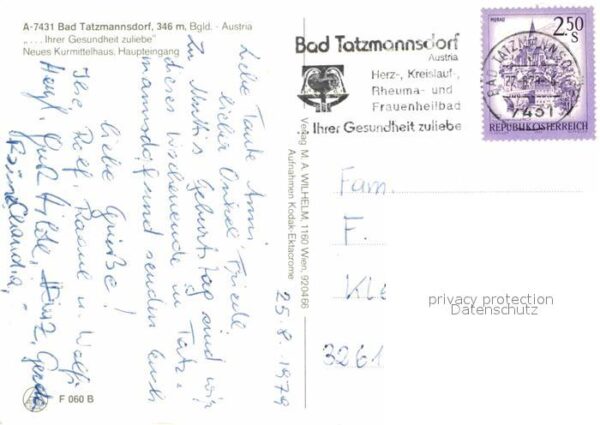 A-7431 Bad Tatzmannsdorf, 346 m, Bgld. - Austria
"....Ihrer Gesundheit zuliebe"
Neues Kurmittelhaus, Haupteingang
Liebe Tante Anni,
lieber Onkel Friedl!
Zu Muttis Geburtstag sind wir
dieses Wochenende in Tatz-
mannsdorf und senden Euch
liebe Grüße!
Ihre Rolf, Raoul u. Wolf,
Gerda
Claudia,
25.8.1979
F 060 B
Verlag M. A. WILHELM, 1160 Wien, 920466
Aufnahmen Kodak-Ektacrome
Bad Tatzmannsdorf
Austria
Herz-, Kreislauf-,
Rheuma- und
Frauenheilbad
Ihrer Gesundheit zuliebe
MURAU
2.50
S
BAD TATZMANNSDORF
7431
REPUBLIK ÖSTERREICH
Fam.
F.
Kle
3261
privacy protection
Datenschutz